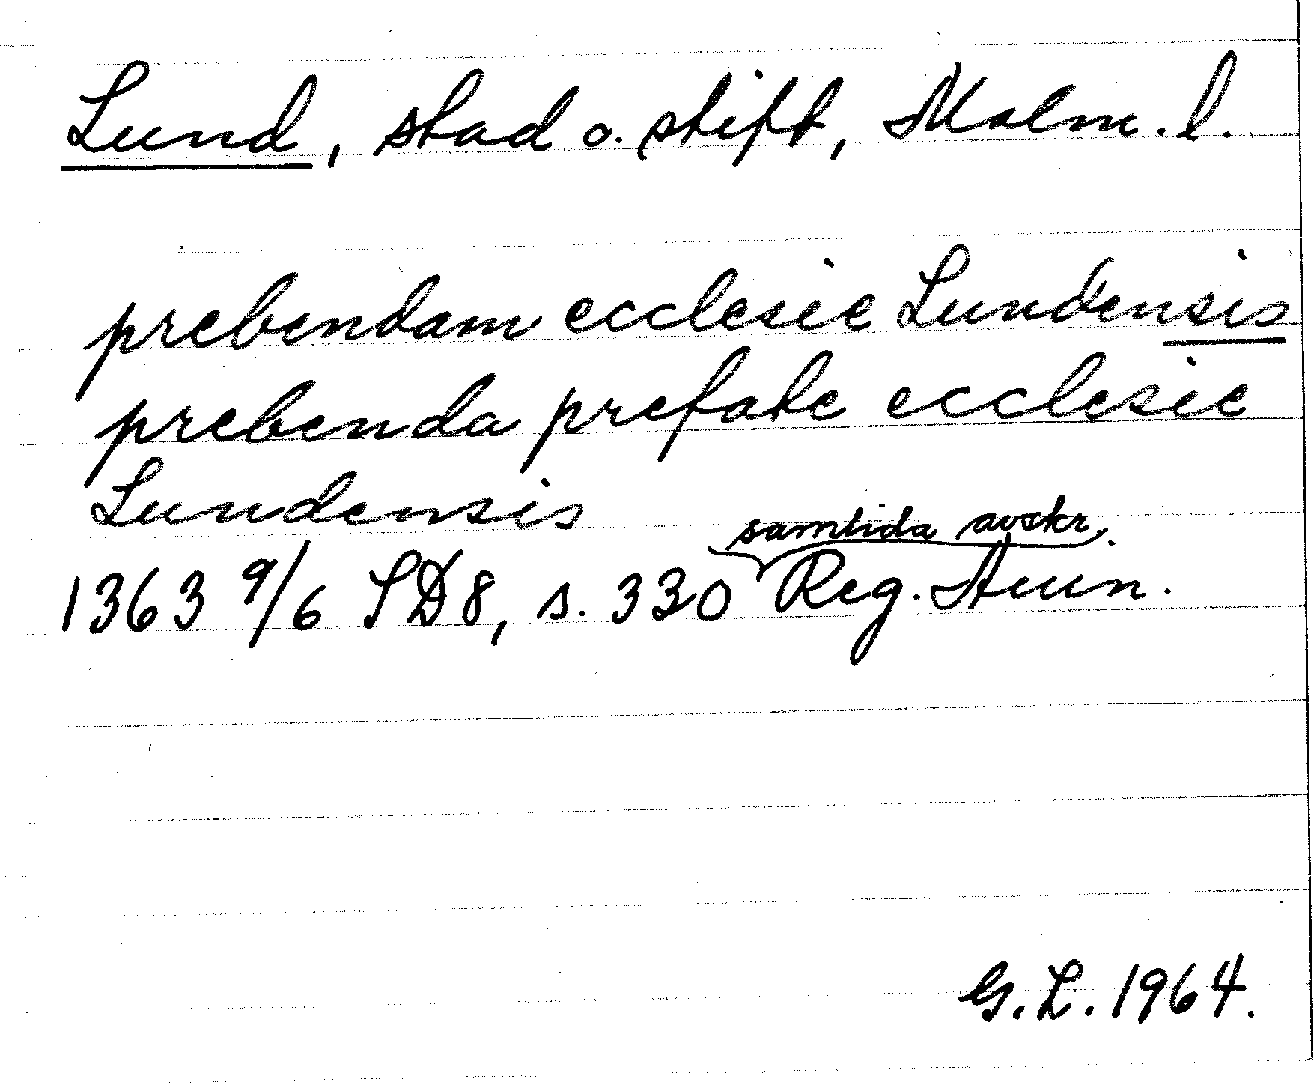 Lund, stad o. stift, Malm. l.
prebendam ecclesie Lundensis
prebenda prefate ecclesie
Lundensis
samtida avskr.
1363 9/6 SD8, s. 330 Reg. Avin.
G. L. 1964.